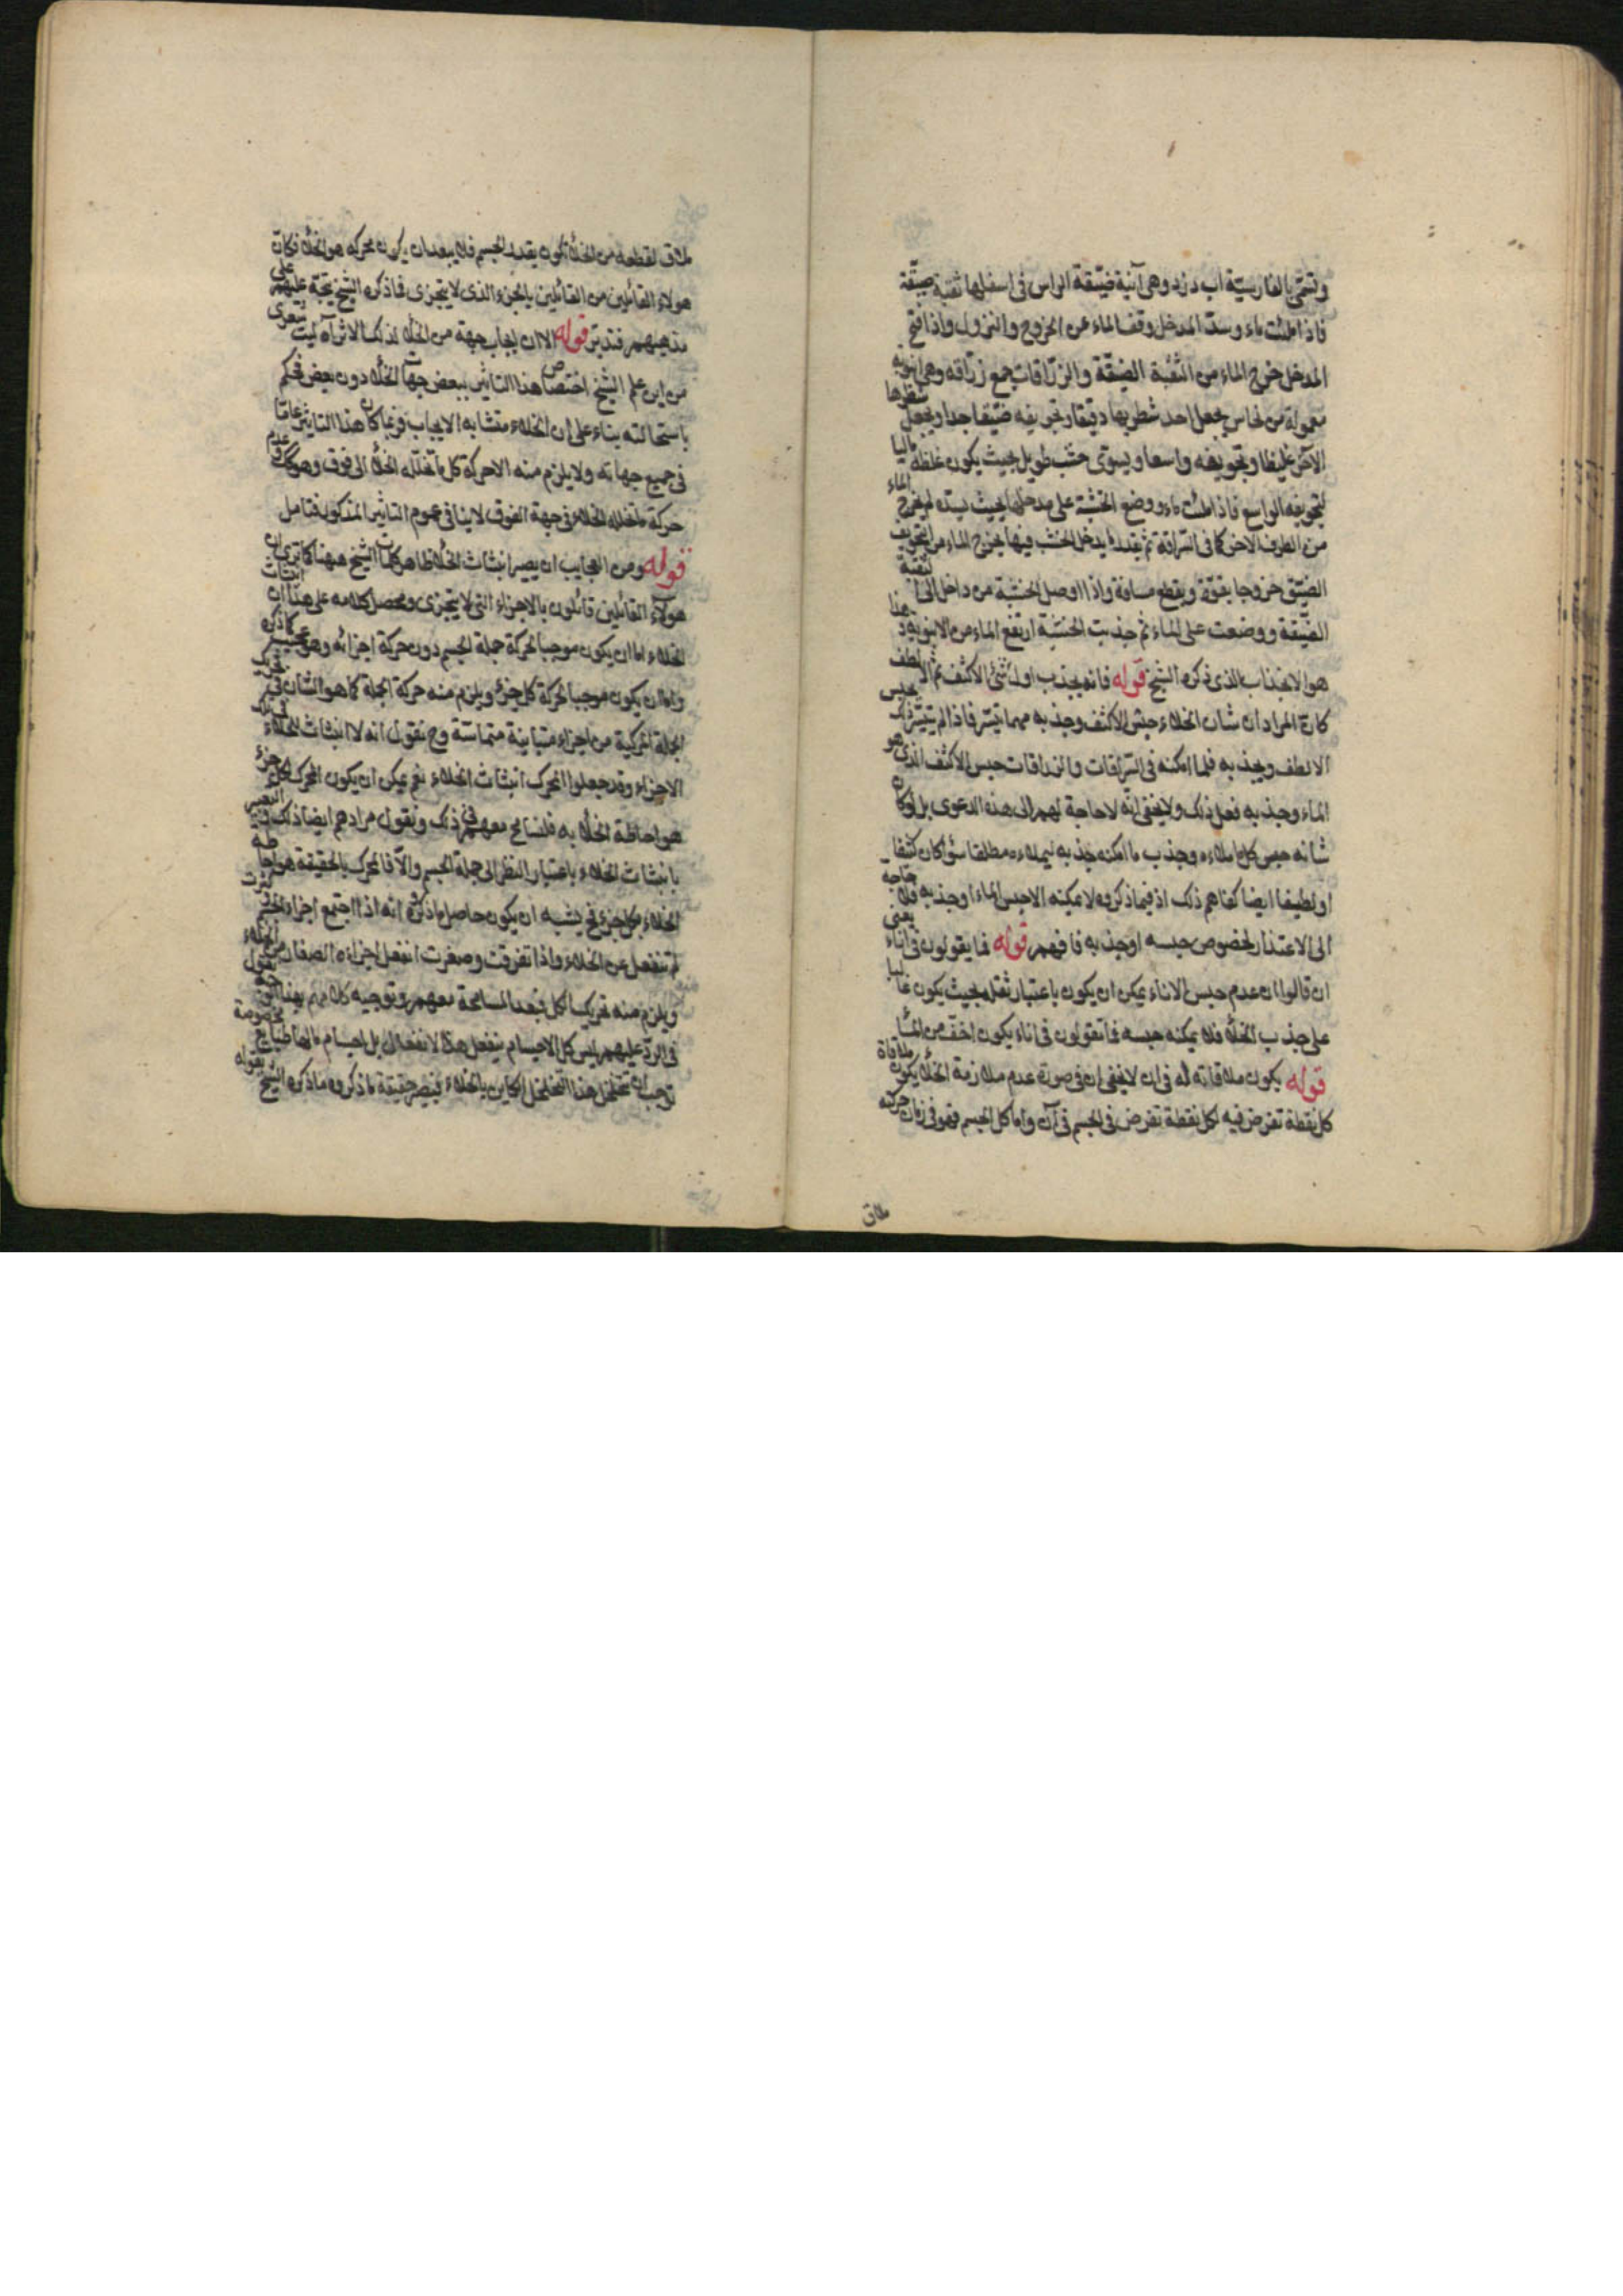 وتسمّى بالفارسيّة اب دزد وهى آنية ضيّقة الراس فى اسفلها ثقبة ضيّقة
فاذا ملئت ماء وسدّ المدخل وقف الماء عن الخروج والنزول واذا فتح
المدخل خرج الماء من الثقبة الضيّقة والزرّاقات جمع زرّاقه وهى انبوبه
معمولة من نحاس يجعل احد شطريها دقيقا وتجويفه ضيّقا جدا ويجعل شطرها
الآخر غليظا وتجويفه واسعا ويسوّى خشب طويل بحيث يكون غلظه ماليا
لتجويفه الواسع فاذا ملئت ماء ووضع الخشبة على مدخلها بحيث يسدّه لم يخرج الماء
من الطرف الاخر كما فى السراقة ثم بقدر ما يدخل الخشب فيها يخرج الماء من التجويف
الضيّق خروجا بقوّة ويقطع مسافة واذا اوصل الخشبة من داخل الى الثقبة
الضيّقة ووضعت على الماء ثم جذبت الخشبة ارتفع الماء من الانبوبه وهذا
هو الانجذاب الذى ذكره الشيخ قوله فانه يجذب اول شئ الاكثف ثم الالطف
كان المراد ان شان الخلاء حبس الاكثف وجذبه مهما تيسّر فاذا لم يتيسّر ذلك يحبس
الالطف ويجذبه فلما امكنه فى السرّاقات والزراقات حبس الاكثف الذى هو
الماء وجذبه فعل ذلك ولا يخفى انّه لا حاجة لهم الى هذه الدعوى بل لو كان
شانه حبس كل ما ملاءه وجذب ما امكنه جذبه ليملاءه مطلقا سواء كان كثيفا
او لطيفا ايضا كفاهم ذلك اذ فيما ذكروه لا يمكنه الا حبس الماء او جذبه فلا حاجة
الى الاعتذار لخصوص حبسه او جذبه فافهم قوله فما يقولون فى اناء يعنى
ان قالوا ان عدم حبس الاناء يمكن ان يكون باعتبار ثقله بحيث يكون غالبا
على جذب الخلاء فلا يمكنه حبسه فما تقولون فى اناء يكون اخف من الماء
قوله يكون ملاقاته له فى ان لا يخفى ان فى صورة عدم ملازمة الخلاء يكون ملاقاة
كل نقطة تفرض فيه لكل نقطة تفرض فى الجسم فى آن واما كل الجسم فهو فى زمان حركته
ملاق
ملاق لقطعه من الخلاء تكون بقدر الجسم فلا يبعد ان يكون محركه هو الخلاء فكان
هولاء القائلين من القائلين بالجزء الذى لا يتجزى فما ذكره الشيخ يتجّه عليهم على
مذهبهم فتدبّر قوله الا ان ايجاب جهة من الخلاء لذلك الاثر آه ليت شعرى
من اين علم الشيخ اختصاص هذا التاثير ببعض جهات الخلاء دون بعض فحكم
باستحالته بناء على ان الخلاء متشابه الايجاب فربما كان هذا التاثير عامّا
فى جميع جهاته ولا يلزم منه الا حركة كل ما تخلّله الخلاء الى فوق وهو كك وعدم
حركة ما تخلله الخلاء فى جهة الفوق لا ينافى عموم التاثير المذكور فتامل
قوله ومن العجايب ان يصير انبثاث الخلاء ظاهر كلمات الشيخ ههنا كما ترى ان
هولاء القائلين قائلون بالاجزاء التى لا يتجزى ومحصل كلامه على هذا ان انبثاث
الخلاء اما ان يكون موجبا لحركة جملة الجسم دون حركة اجزائه وهو عجيب كما ذكره
واما ان يكون موجبا لحركة كل جزء ويلزم منه حركة الجملة كما هو الشان فى تحريك
الجملة المركبة من اجزاء متباينة متماسّة وح نقول انه لا انبثاث للخلاء فى تلك
الاجزاء وقد جعلوا المحرك انبثاث الخلاء نعم يمكن ان يكون المحرك لكل جزء
هو احاطة الخلاء به فلنسامح معهم فى ذلك ونقول مرادهم ايضا ذلك والتعبير
بانبثاث الخلاء باعتبار النظر الى جملة الجسم والا فالمحرك بالحقيقة هو احاطه
الخلاء بكل جزء فح يشبه ان يكون حاصل ما ذكروه انه اذا اجتمع اجزاء الجسم وكثرت
لم تنفعل عن الخلاء واذا تفرقت وصغرت انفعل اجزاءه الصغار من الخلاء
ويلزم منه تحريك الكل فبعد المسامحة معهم وتوجيه كلامهم بهذا الوجه نقول
فى الردّ عليهم ليس كل الاجسام ينفعل هذا الانفعال بل اجسام مالها طبايع مخصوصة
توجب ان تتخلخل هذا التخلخل الكاين بالخلاء فيصير حقيقة ما ذكروه ما ذكره الشيخ بقوله